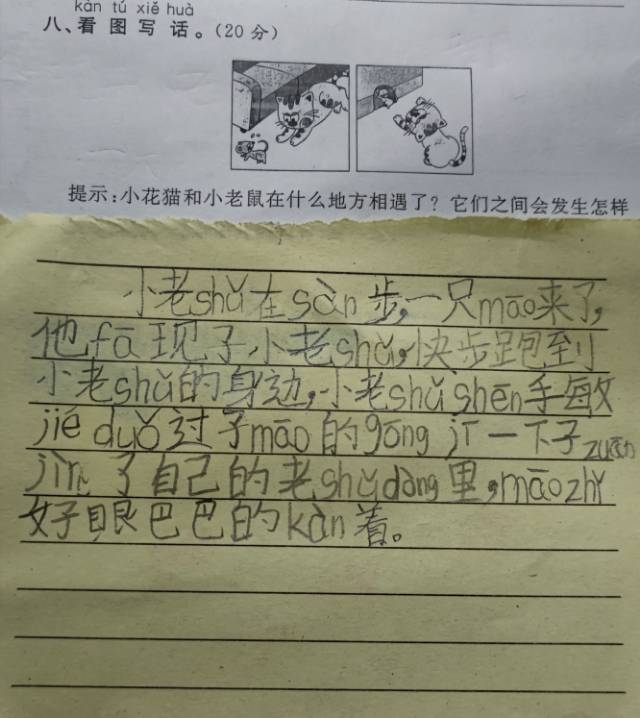 kàn tú xiě huà
八、看图写话。(20分)
提示:小花猫和小老鼠在什么地方相遇了?它们之间会发生怎样
小老shǔ在sàn步,一只māo来了,
他fā现了小老shǔ,快步跑到小
小老shǔ的身边,小老shǔ shēn手敏
jié duǒ过了māo的gōng jī一下子zuān
jìn了自己的老shǔ dòng里,māo zhǐ
好眼巴巴的kàn着。